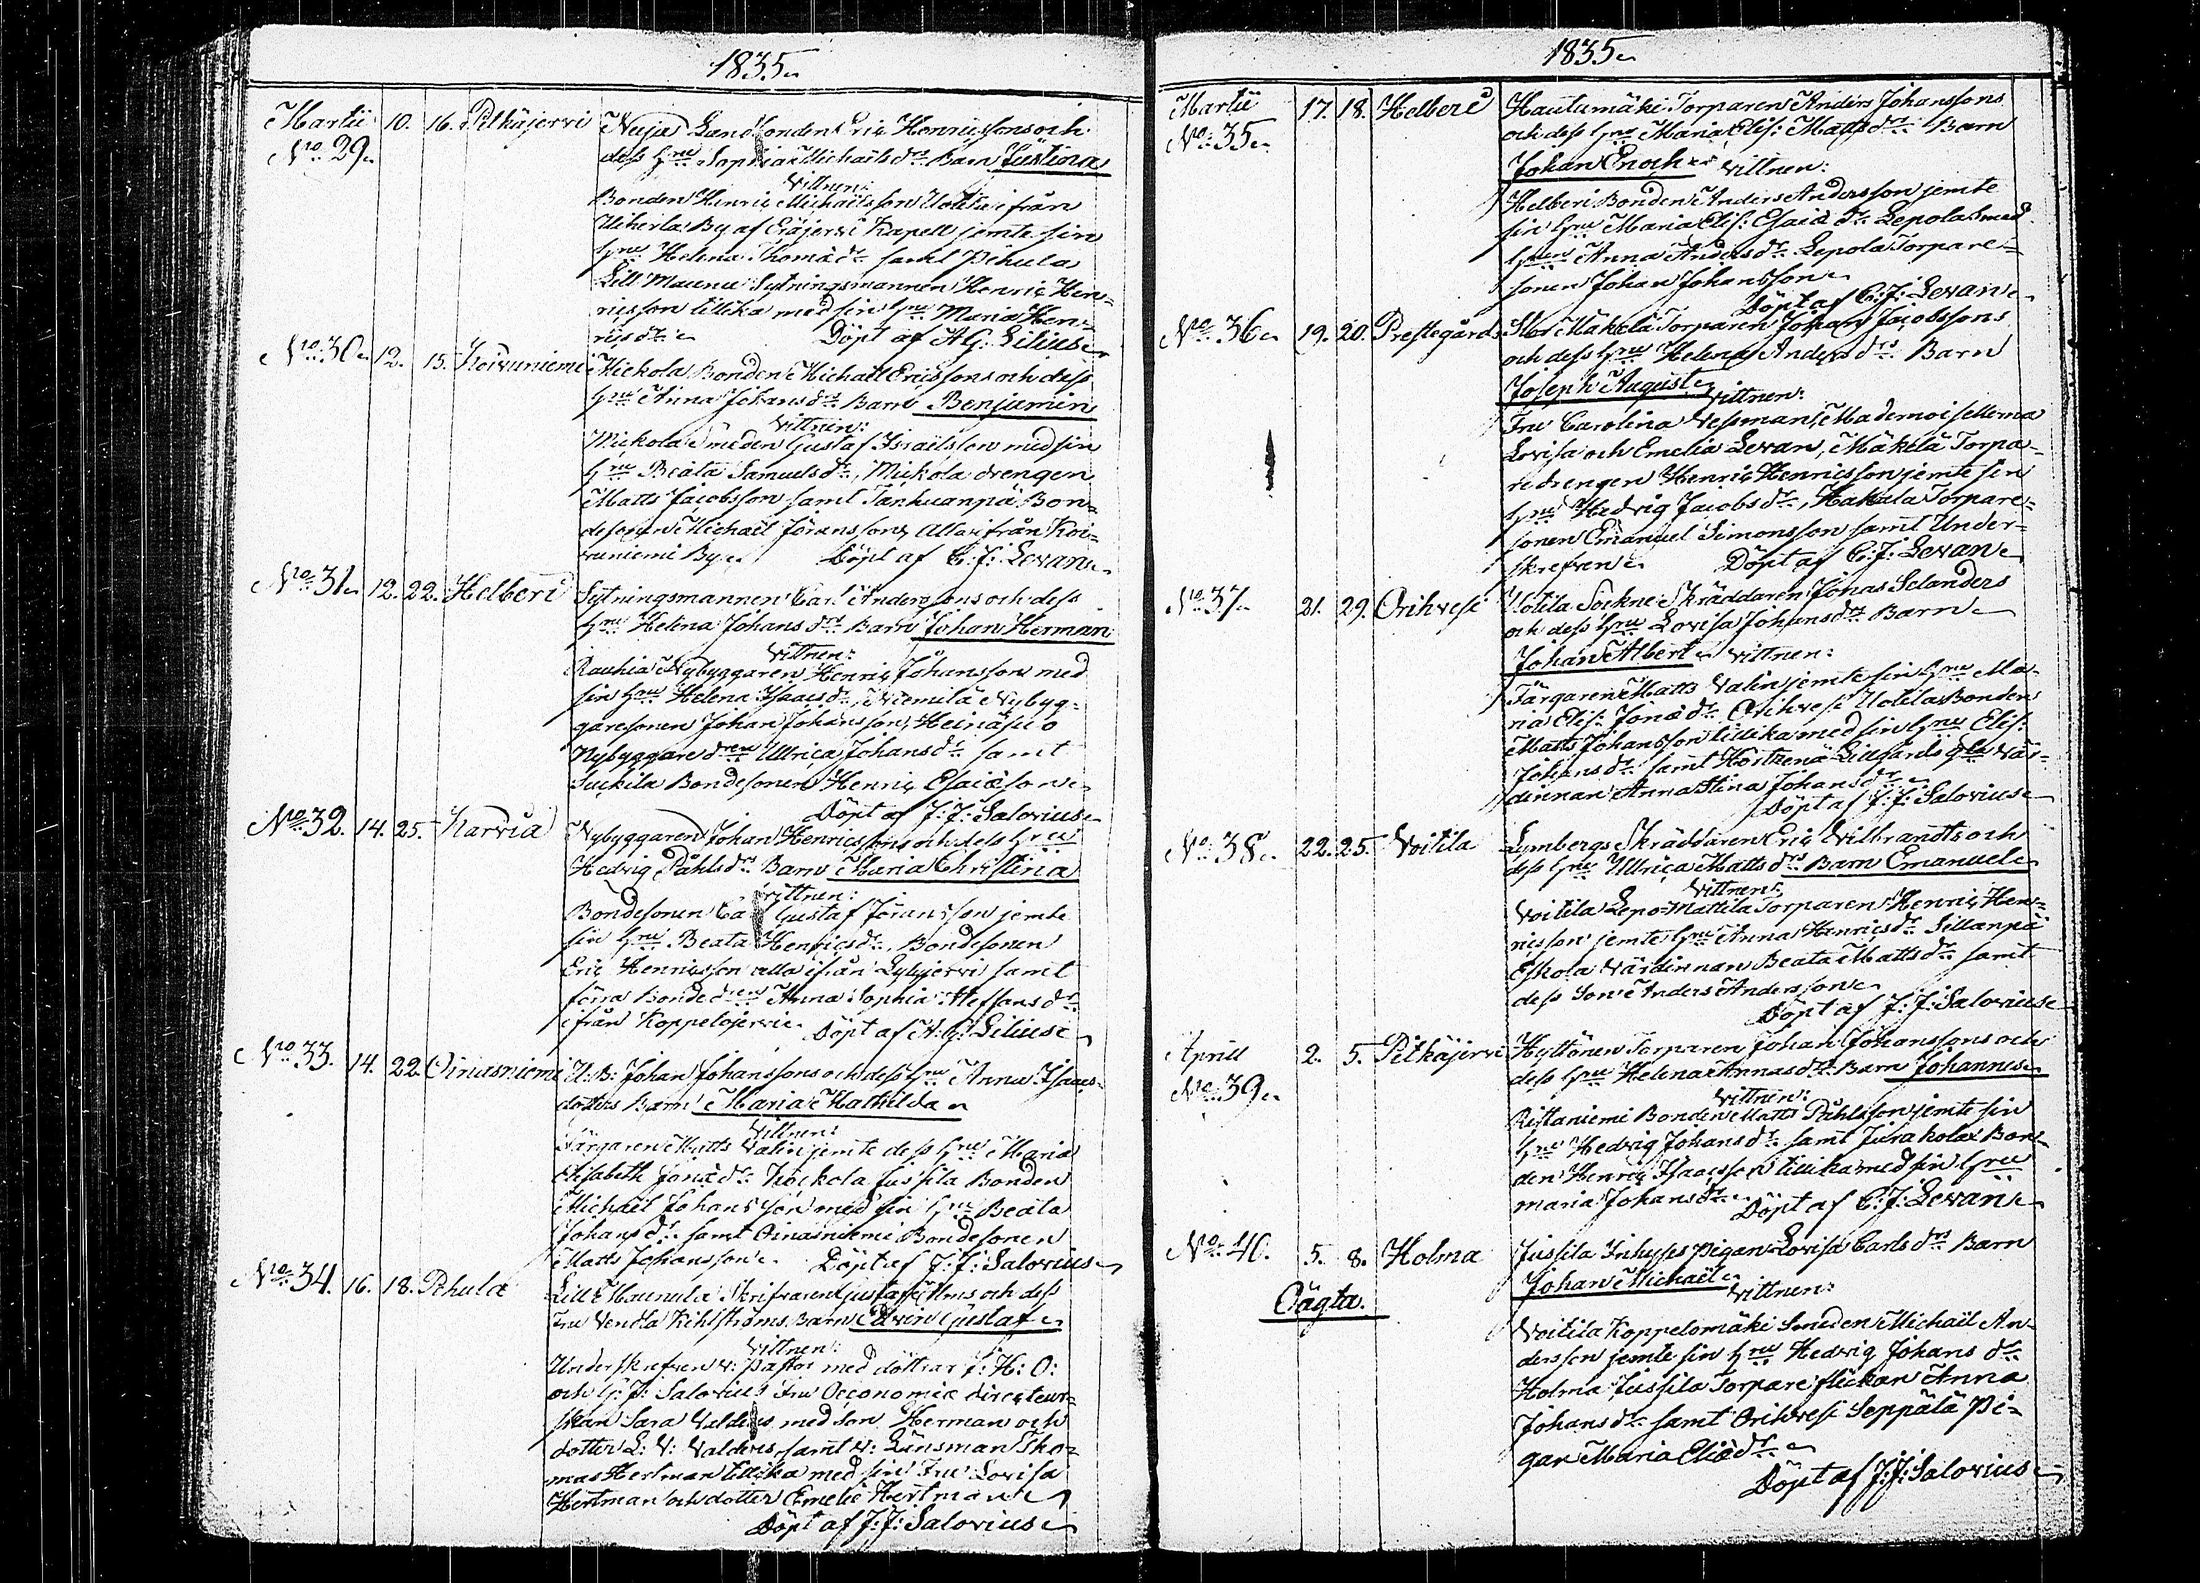 1835
Martii 10. 16. Pitkäjervi Neuja Landbonden Eric Henricssons och
No 29. dess Hru Sophia Michaelsdrs Barn Justina
Vittnen:
Bonden Henric Michaelsson Uotti ifrån
By af Kapell jemte sin
Hru Helena Thomædr samt Pihula
Lill Maunu Sytningsmannen Henric Hen=
ricsson tillika med sin Hru Maria Hen=
ricsdr Döpt af A G: Lilius
No 30 12. 15. Koivuniemi Mickola Bonden Michaël Ericssons och dess
Hru Anna Johansdrs Barn Benjamin
Vittnen:
Mickola Smeden Gustaf Israëlsson med sin
Hru Beata Samuelsdr, Mickola drengen
Matts Jacobsson samt Tankuanpä Bon=
desonen Michaël Göransson, Alla ifrån Koi=
vuniemi By. Döpt af C: J: Levan
No 31 12. 22. Helberi Sytningsmannen Carl Anderssons och dess
Hru Helena Johansdrs Barn Johan Herman
Vittnen:
Rauhia Nybyggaren Henric Johansson med
sin Hru Helena Isaacsdr, Niemilä Nybyg=
garesonen Johan Johansson, Heinäsuo
Nybyggaredren Ullrica Johansdr samt
Suckila Bondesonen Henric Esaiæson
Döpt af J: J: Salovius
No 32. 14. 25. Karvia Nybyggaren Johan Henricssons och dess Hru
Hedvig Påhlsdrs Barn Maria Christina
Vittnen:
Bondesonen Gustaf Göransson jemte
sin Hru Beata Henricsdr, Bondesonen
Eric Henricsson alla ifrån Lylyjervi samt
förra Bondedren Anna Sophia Staffansdr
ifrån Koppelojervi. Döpt af A: G: Lilius
No 33. 14. 22. Oinasniemi U: B: Johan Johanssons och dess Hru Anna Isaacs=
dotters Barn Maria Mathilda
Vittnen:
Färgaren Matts Valin jemte dess Hru Maria
Elisabeth Jonædr Kockola Jussila Bonden
Michaël Johansson med sin Hru Beata
Johansdr samt Oinasniemi Bondesonen
Matts Johansson. Döpt af J: J: Salovius
No 34. 16. 18. Pihula Lill Maunula Skrifvaren Gustaf Alms och dess
Fru Vendla Kihlströms Barn Edvin Gustaf
Vittnen:
Underskrefven v: Pastor med döttrar J: H: O:
och G: J: Salovius Fru Oeconomie directeur=
skan Sara Valdens med Son Herman och
dotter L: V: Valdens, samt v: Länsman Tho=
mas Hertman tillika med sin Fru Lovisa
Hertman och dotter Emelie Hertman
Döpt af J: J: Salovius
1835
Martii 17. 18. Helberi Hautamäki Torparen Anders Johanssons
No 35 och dess Hru Maria Elis: Mattsdrs Barn
Johan Enoch Vittnen:
Helberi Bonden Anders Andersson jemte
sin Hru Maria Elis: Esaiædr Lepola Smed
Hrun Anna Andersdr Lepola Torpare=
sonen Johan Johansson
Döpt af C: J: Levan
No 36 19. 20. Prestegårds Stor Mäkelä Torparen Johan Jacobssons
och dess Hru Helena Andersdrs Barn
Joseph August
Vittnen:
Fru Carolina Vessman, Mademoisellerna
Lovisa och Emelia Levan, Mäkelä Torpa=
redrengen Henric Henricsson jemte sin
Hru Hedvig Jacobsdr, Hakala Torpare=
sonen Emanuel Simonsson samt Under=
skrefven Döpt af C: J: Levan
No 37 21. 29. Orihvesi Uotila Sockne Skräddaren Jonas Selanders
och dess Hru Lovisa Johansdrs Barn
Johan Albert Vittnen:
Färgaren Matts Valin jemte sin Hru Ma=
ria Elis: Jonædr Orihvesi Uotila Bonden
Matts Johansson tillika med sin Hru Elis:
Johansdr samt Lillgårds gla Vär=
dinnan Anna Stina Johansdr
Döpt af J: J: Salovius
No 38 22. 25. Voitila Lymbergs Skräddaren Eric Vilbrandts och
dess Hru Ullrica Mattsdrs Barn Emanuel
Vittnen:
Voitila Lepo=Mattila Torparen Henric Hen=
ricsson jemte Hru Anna Henricsdr Sillanpä
Eskola Värdinnan Beata Mattsdr samt
dess Son Anders Andersson
Döpt af J: J: Salovius
April 2. 5. Pitkäjervi Hyttönen Torparen Johan Johanssons och
No 39 dess Hru Helena Annasdrs Barn Johannes
Vittnen:
Ristaniemi Bonden Matts Påhlsson jemte sin
Hru Hedvig Johansdr samt Jurakola Bon=
den Henric Isaacsson tillika med sin Hru
Maria Johansdr. Döpt af C: J: Levan
No 40. 5. 8. Holma Jussila Inhyses Pigan Lovisa Carlsdrs Barn
Oägta. Johan Michaël Vittnen:
Voitila Koppelomäki Smeden Michaël An=
dersson jemte sin Hru Hedvig Johansdr
Holma Jussila Torpare flickan Anna
Johansdr samt Orihvesi Seppälä Pi=
gan Maria Eliædr
Döpt af J: J: Salovius